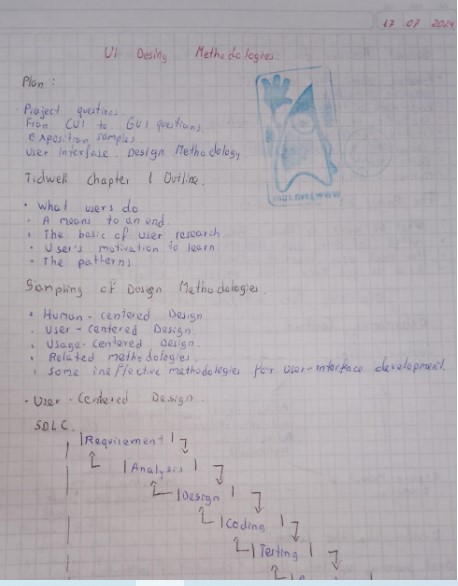 17 07 2024
UI Desing Methodologies
Plan :
Project questines
From CUI to GUI questions
Exposition samples
User interfase. Design Methodology
Tidwell chapter 1 Outline.
· What users do
· A means to an end.
· The basic of user research
· User's motivation to learn
· The patterns.
Sampling of Design Methodologies.
· Human-centered Design
· User-centered Design.
· Usage-centered Design.
· Related methodologies.
· Some ineffective methodologies for user-interface development.
· User-Centered Design.
SDLC.
Requirement
Analysis
Design
Coding
Testing